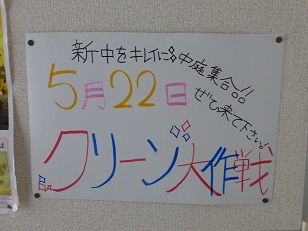 新中をキレイに中庭集合!!
5月22日
ぜひ来て下さい。
クリーン大作戦